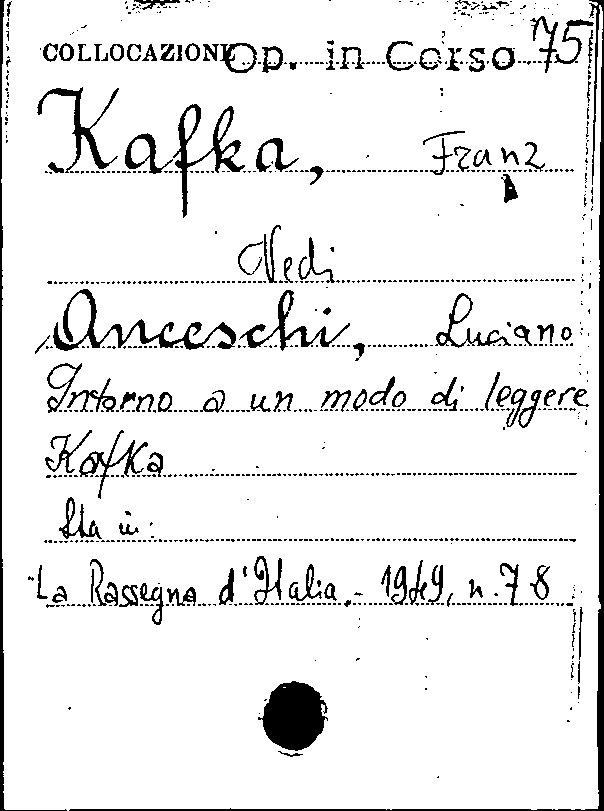 COLLOCAZIONE Op. in Corso 75
Kafka, Franz
Vedi
Anceschi, Luciano
Intorno a un modo di leggere
Kafka
Sta in:
La Rassegna d'Italia.- 1949, n. 7-8